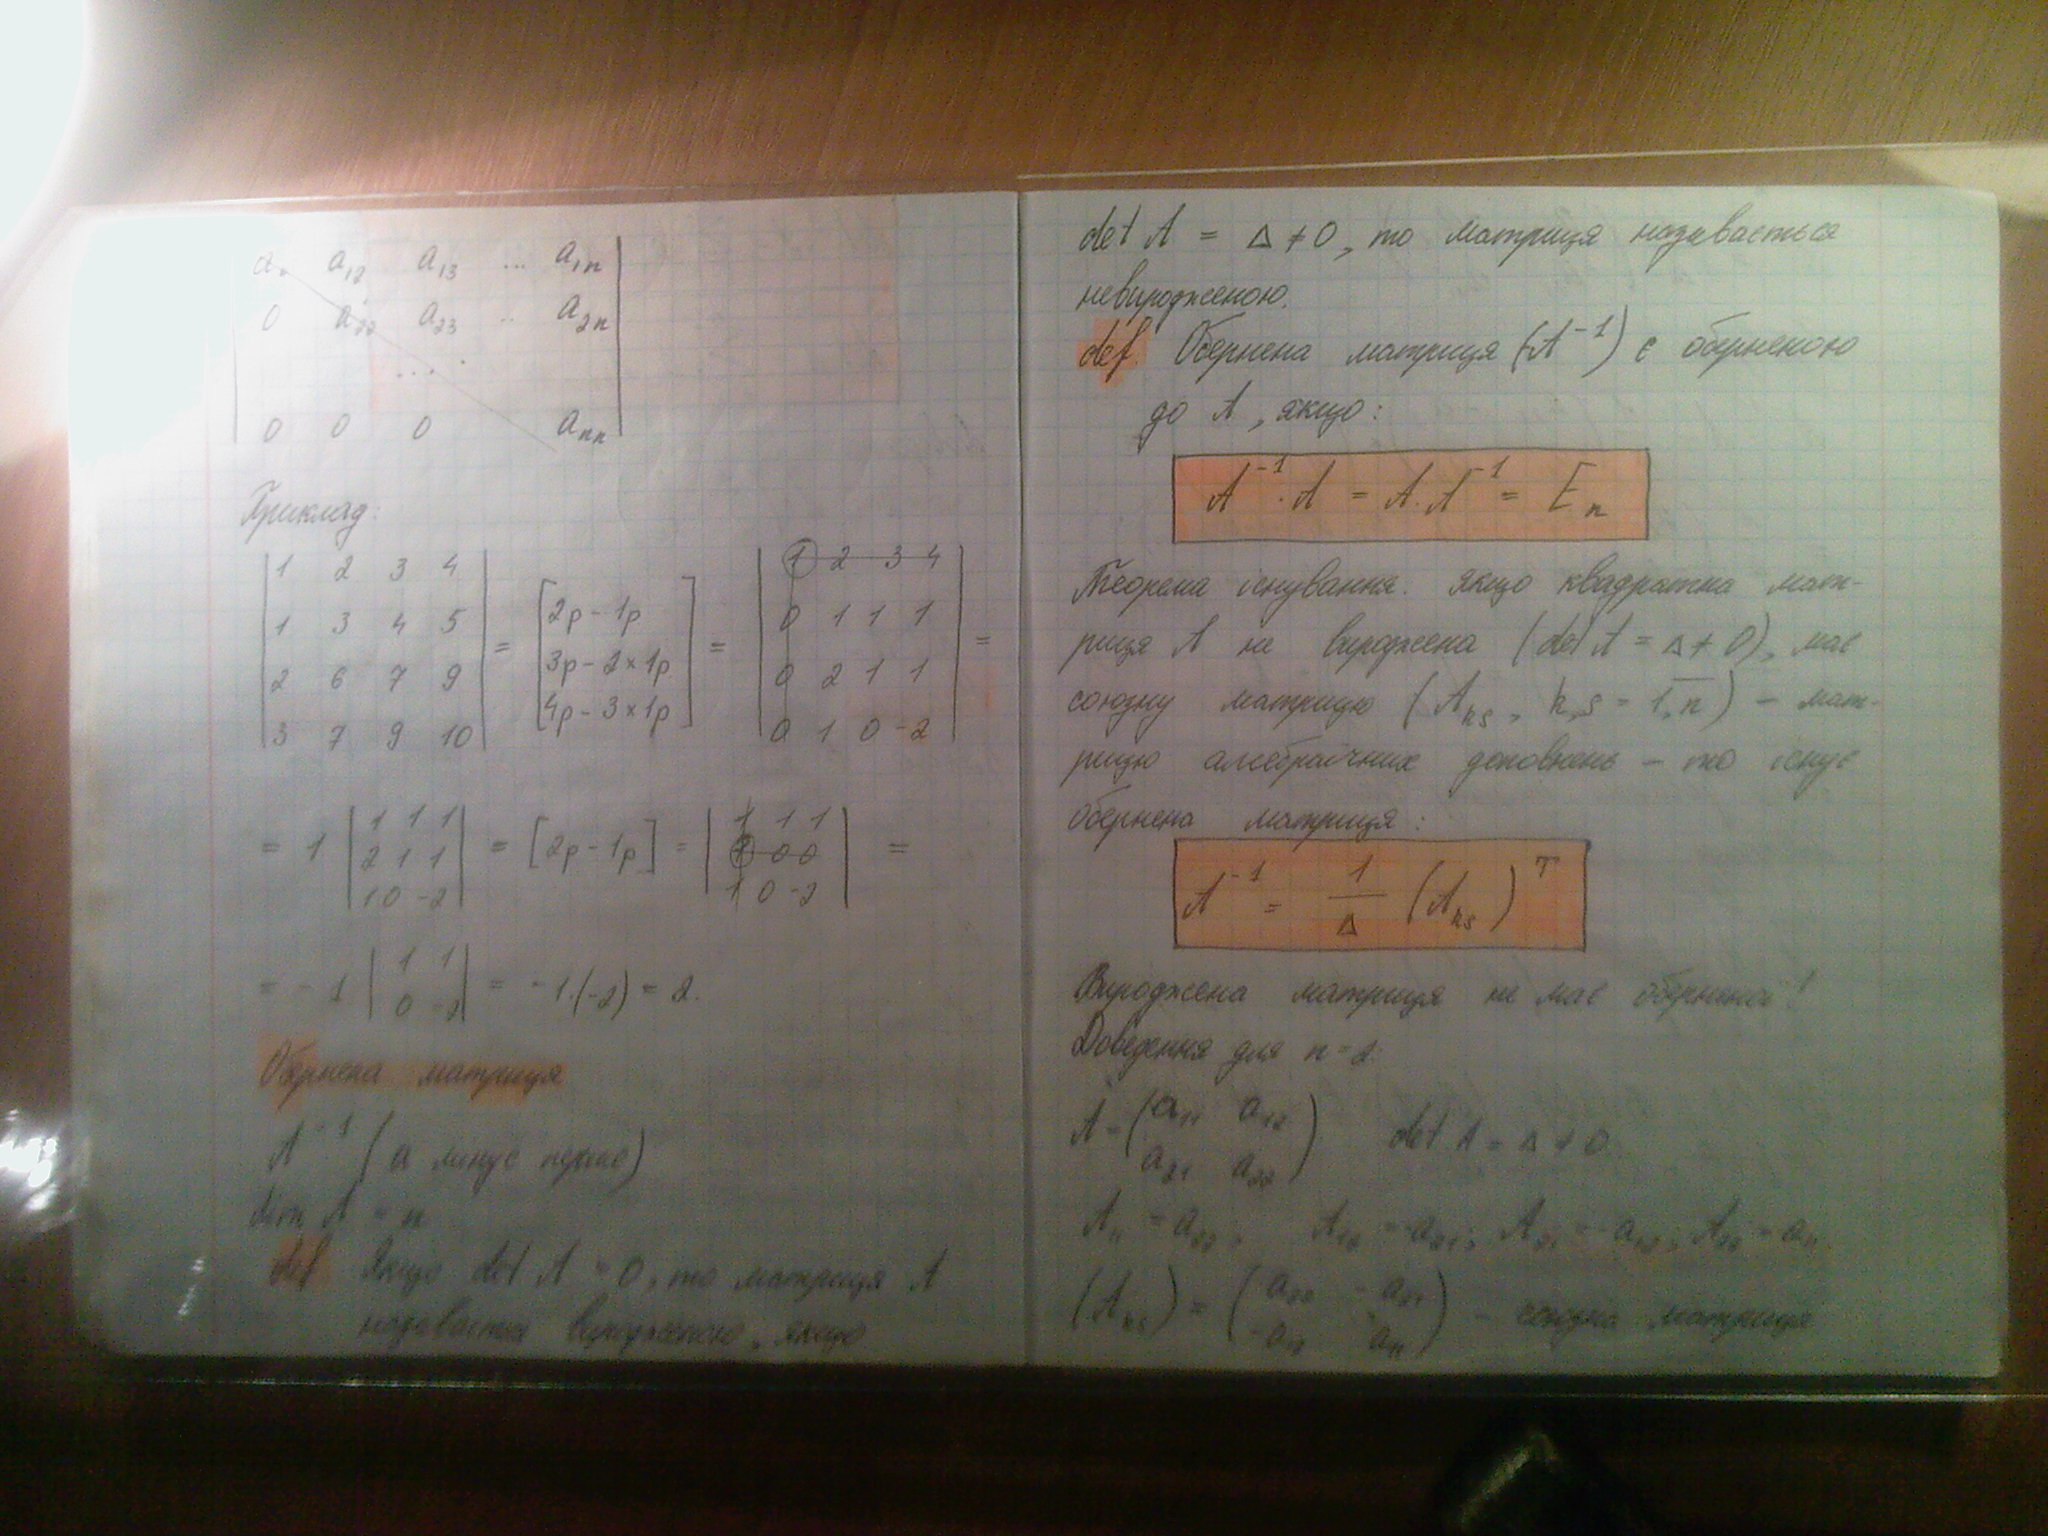 a₁₁ a₁₂ a₁₃ ... a₁ₙ
0 a₂₂ a₂₃ .. a₂ₙ
....
0 0 0 aₙₙ
Приклад:
|1 2 3 4; 1 3 4 5; 2 6 7 9; 3 7 9 10| = [2р - 1р; 3р - 2×1р; 4р - 3×1р] = |1 2 3 4; 0 1 1 1; 0 2 1 1; 0 1 0 -2| =
= 1 |1 1 1; 2 1 1; 1 0 -2| = [2р - 1р] = |1 1 1; 1 0 0; 1 0 -2| =
= -1 |1 1; 0 -2| = -1·(-2) = 2.
Обернена матриця
A⁻¹ (а мінус перше)
dim A = n
def. Якщо det A = 0, то матриця A
називається виродженою, якщо
det A = Δ ≠ 0, то матриця називається
невиродженою.
def. Обернена матриця (A⁻¹) є оберненою
до A, якщо:
A⁻¹·A = A·A⁻¹ = Eₙ
Теорема існування. Якщо квадратна мат-
риця A не вироджена (det A = Δ ≠ 0), має
союзну матрицю (Aₖₛ, k,s = 1,n) - мат-
рицю алгебраїчних доповнень - то існує
обернена матриця:
A⁻¹ = 1/Δ (Aₖₛ)ᵀ
Вироджена матриця не має оберненої!
Доведення для n=2:
A = (a₁₁ a₁₂; a₂₁ a₂₂) det A = Δ ≠ 0
A₁₁ = a₂₂; A₁₂ = -a₂₁; A₂₁ = -a₁₂; = a₁₁.
(Aₖₛ) = (a₂₂ -a₂₁; -a₁₂ a₁₁) - союзна матриця